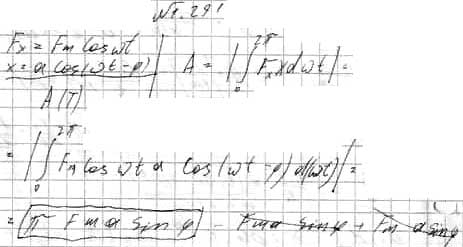 № 4.291
Fx = Fm cos ωt
x = a cos(ωt - φ)
A(T)
A = |∫₀^{2π} Fx x dωt| =
= |∫₀^{2π} Fm cos ωt a cos(ωt - φ) d(ωt)| =
= π Fm a sin φ - Fma sin φ + Fm a sin φ